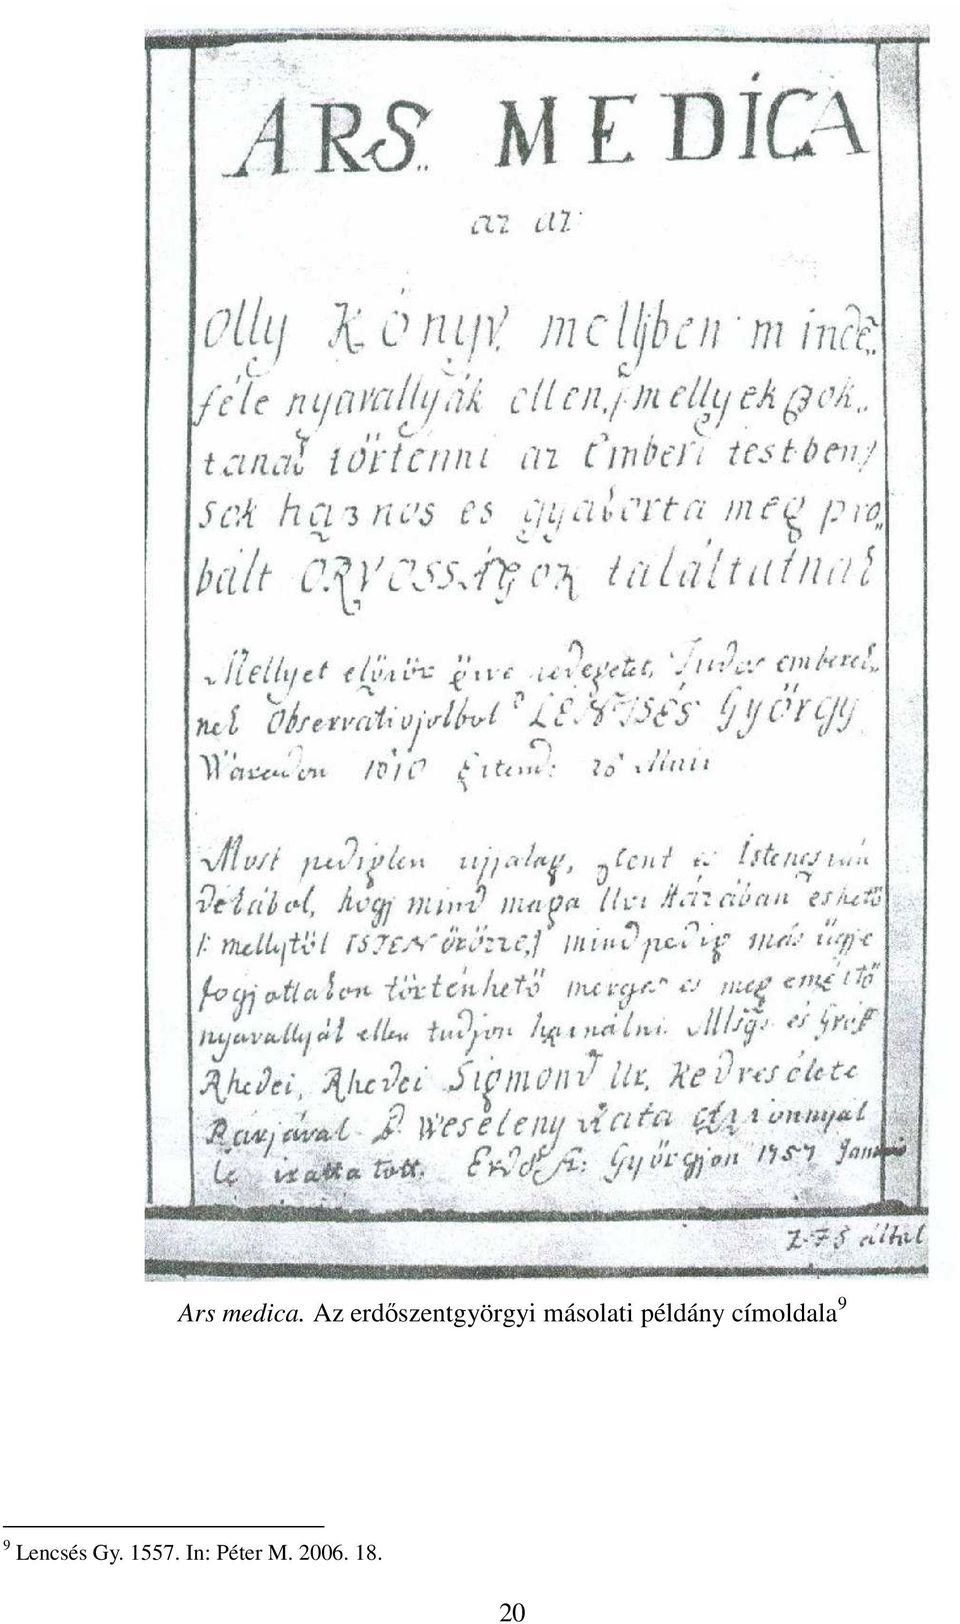 ARS MEDICA
az az
Olly Könyv mellyben mindẽ„
féle nyavallyák ellen, /: mellyek szok„
tanak törtenni az Emberi testben/
sok hasznos es gyakorta meg pro„
bált ORVOSSÁGOK találtatnak
Mellyet először öszve Tudos emberek„
nek Observatiojokbol LENTSÉS György
Waradon 1610
Most pediglen ujjalag, Isten
hogy mind maga Házában eshető
/: mellytöl ISTEN őrözze,/ mind pedig más ügye
fogjattakon törtenhető merges es meg emésztő
nyavallyák ellen tudjon hasznalni Mlsgs és Gróff
Rhedei, Rhedei Sigmond Ur, Kedves élete
Párjával B Weseleny Kata Aszszonnyal
le iratta tott. Erdö Sz: Györgjon 1757
Z-F-S által
Ars medica. Az erdőszentgyörgyi másolati példány címoldala⁹
⁹ Lencsés Gy. 1557. In: Péter M. 2006. 18.
20